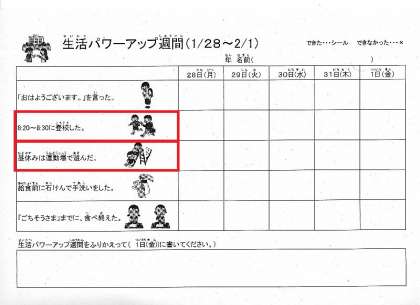 生活パワーアップ週間(1/28～2/1)
できた・・・シール　できなかった・・・×
年 名前(　　　)
28日(月)　29日(火)　30日(水)　31日(木)　1日(金)
「おはようございます。」を言った。
8:20～8:30に登校した。
昼休みは運動場で遊んだ。
給食前に石けんで手洗いをした。
「ごちそうさま」までに、食べ終えた。
生活パワーアップ週間をふりかえって( 1日(金)に書いてください。)